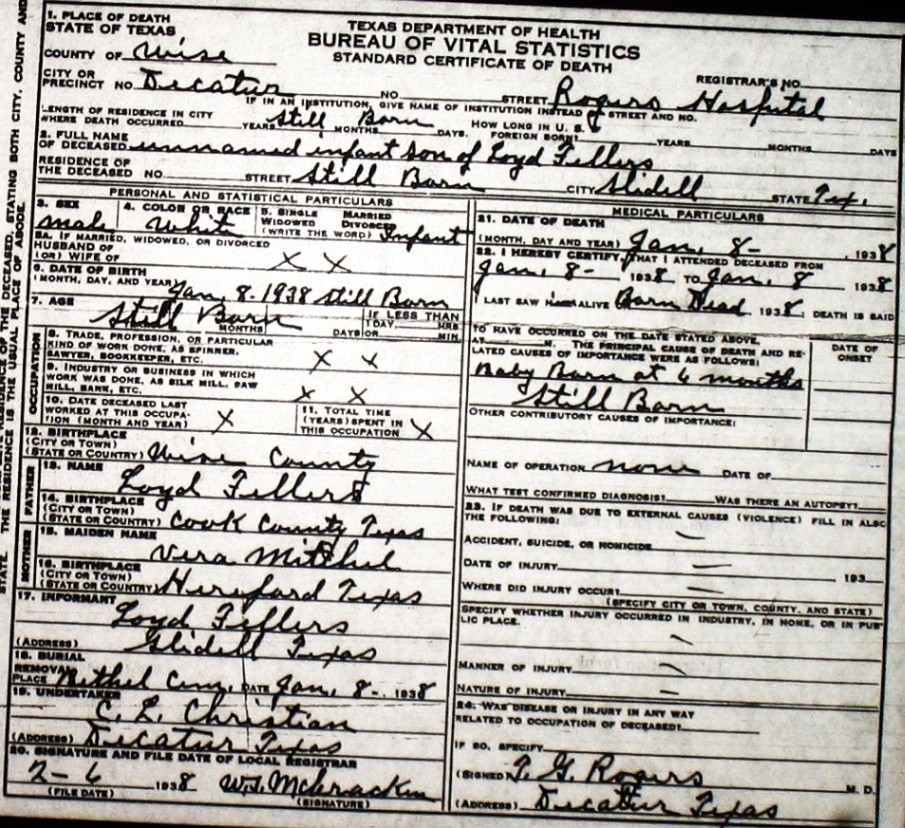 TEXAS DEPARTMENT OF HEALTH
BUREAU OF VITAL STATISTICS
STANDARD CERTIFICATE OF DEATH
1. PLACE OF DEATH
STATE OF TEXAS
COUNTY OF Wise
REGISTRAR'S NO.
CITY OR PRECINCT NO. Decatur NO. STREET Rogers Hospital
IF IN AN INSTITUTION, GIVE NAME OF INSTITUTION INSTEAD OF STREET AND NO.
LENGTH OF RESIDENCE IN CITY WHERE DEATH OCCURRED YEARS Still Born MONTHS DAYS. HOW LONG IN U. S. IF FOREIGN BORN? YEARS MONTHS DAYS
2. FULL NAME OF DECEASED unnamed infant son of Loyd Fellers
RESIDENCE OF THE DECEASED NO. STREET Still Born CITY Slidell STATE Tex.
PERSONAL AND STATISTICAL PARTICULARS
3. SEX male
4. COLOR OR RACE White
5. SINGLE MARRIED WIDOWED DIVORCED (WRITE THE WORD) Infant
5a. IF MARRIED, WIDOWED, OR DIVORCED
HUSBAND OF
(OR) WIFE OF X X
6. DATE OF BIRTH
(MONTH, DAY, AND YEAR) Jan. 8. 1938 Still Born
7. AGE Still Born MONTHS DAYS IF LESS THAN 1 DAY HRS OR MIN.
OCCUPATION
8. TRADE, PROFESSION, OR PARTICULAR
KIND OF WORK DONE, AS SPINNER,
SAWYER, BOOKKEEPER, ETC. X X
9. INDUSTRY OR BUSINESS IN WHICH
WORK WAS DONE, AS SILK MILL, SAW
MILL, BANK, ETC. X X
10. DATE DECEASED LAST
WORKED AT THIS OCCUPA-
TION (MONTH AND YEAR) X
11. TOTAL TIME
(YEARS) SPENT IN
THIS OCCUPATION X
12. BIRTHPLACE
(CITY OR TOWN)
(STATE OR COUNTRY) Wise County
FATHER
13. NAME
Loyd Fellers
14. BIRTHPLACE
(CITY OR TOWN)
(STATE OR COUNTRY) Cook County Texas
MOTHER
15. MAIDEN NAME
Vera Mitchel
16. BIRTHPLACE
(CITY OR TOWN)
(STATE OR COUNTRY) Hereford Texas
17. INFORMANT
Loyd Fellers
(ADDRESS) Slidell Texas
18. BURIAL
REMOVAL
PLACE Cem. DATE Jan. 8-. 1938
19. UNDERTAKER
C. L. Christian
(ADDRESS) Decatur Texas
20. SIGNATURE AND FILE DATE OF LOCAL REGISTRAR
2-6 1938 W.J. McCracken
(FILE DATE) (SIGNATURE)
MEDICAL PARTICULARS
21. DATE OF DEATH
(MONTH, DAY AND YEAR) Jan. 8- , 1938
22. I HEREBY CERTIFY, THAT I ATTENDED DECEASED FROM
Jan. 8- 1938 TO Jan. 8 1938
I LAST SAW H ALIVE Born Dead 1938; DEATH IS SAID
TO HAVE OCCURRED ON THE DATE STATED ABOVE,
AT M. THE PRINCIPAL CAUSE OF DEATH AND RE-
LATED CAUSES OF IMPORTANCE WERE AS FOLLOWS:
DATE OF ONSET
Baby Born at 6 months
Still Born
OTHER CONTRIBUTORY CAUSES OF IMPORTANCE:
NAME OF OPERATION none DATE OF
WHAT TEST CONFIRMED DIAGNOSIS? WAS THERE AN AUTOPSY?
23. IF DEATH WAS DUE TO EXTERNAL CAUSES (VIOLENCE) FILL IN ALSO
THE FOLLOWING:
ACCIDENT, SUICIDE, OR HOMICIDE —
DATE OF INJURY — 193
WHERE DID INJURY OCCUR? —
(SPECIFY CITY OR TOWN, COUNTY, AND STATE)
SPECIFY WHETHER INJURY OCCURRED IN INDUSTRY, IN HOME, OR IN PUB-
LIC PLACE. —
MANNER OF INJURY —
NATURE OF INJURY —
24. WAS DISEASE OR INJURY IN ANY WAY
RELATED TO OCCUPATION OF DECEASED?
IF SO, SPECIFY
(SIGNED) T. G. Rogers M. D.
(ADDRESS) Decatur Texas